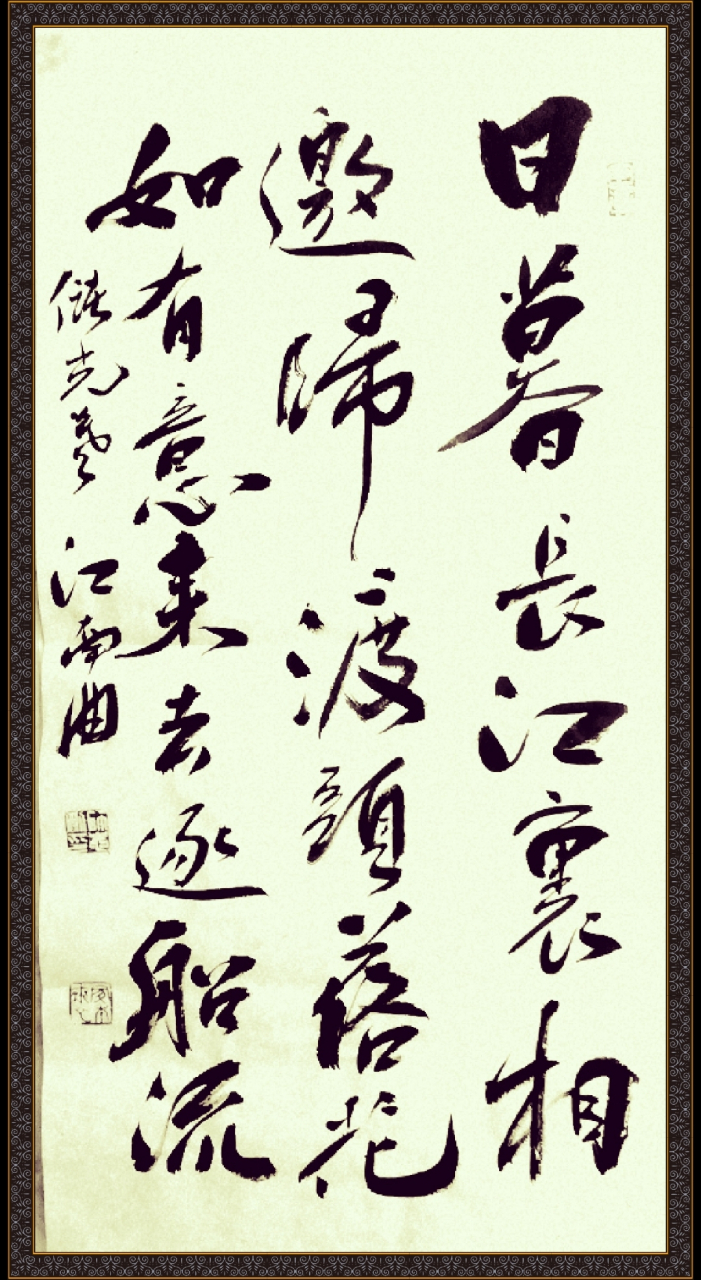 日暮長江裏相
邀歸渡頭落花
如有意来去逐船流
储光羲江南曲